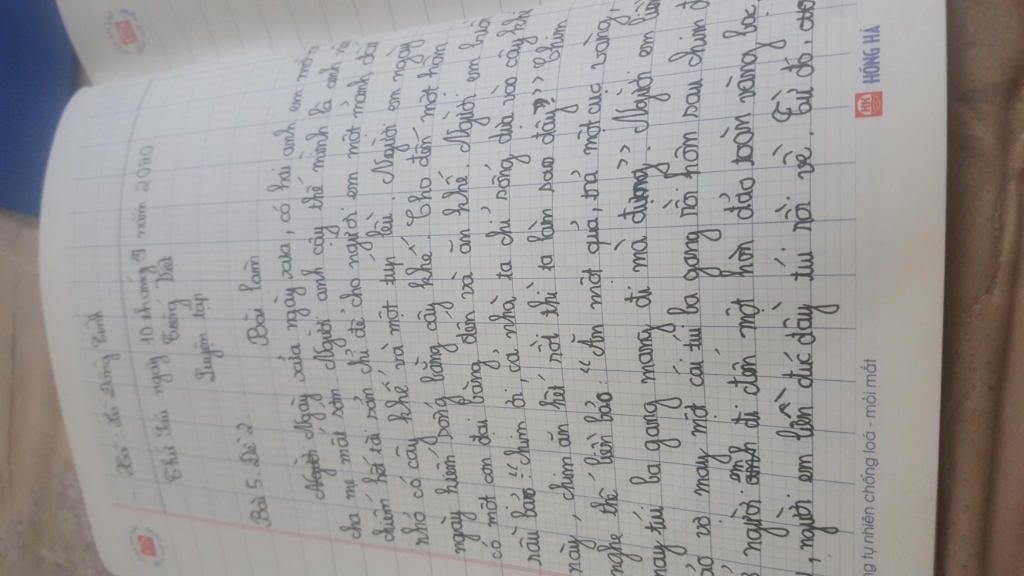 Thứ sáu ngày 10 tháng 9 năm 2080
Tiếng Việt
Luyện tập
Bài 5. Đề 2. Bài làm
Ngày xửa ngày xưa, có hai anh em mồ
cha mẹ mất sớm. Người anh cậy thế mình là anh
chiếm hết tài sản chỉ để cho người em một mảnh đất
nhỏ có cây khế và một túp lều. Người em ngày
ngày kiếm sống bằng cây khế. Cho đến một hôm
có một con đại bàng đến và ăn khế. Người em
nài bảo: "chim ơi, cả nhà ta chỉ sống dựa vào cây khế
này, chim ăn hết rồi thì ta làm sao đây?" Chim
nghe thế liền bảo: "Ăn một quả, trả một cục vàng,
may túi ba gang mang đi mà đựng". Người em liền
vợ may một cái túi ba gang rồi hôm sau chim
người em đi đến một hòn đảo toàn vàng bạc
, người em liền đúc đầy túi rồi về. Từ đó,
HỒNG HÀ
tự nhiên chống loá - mỏi mắt